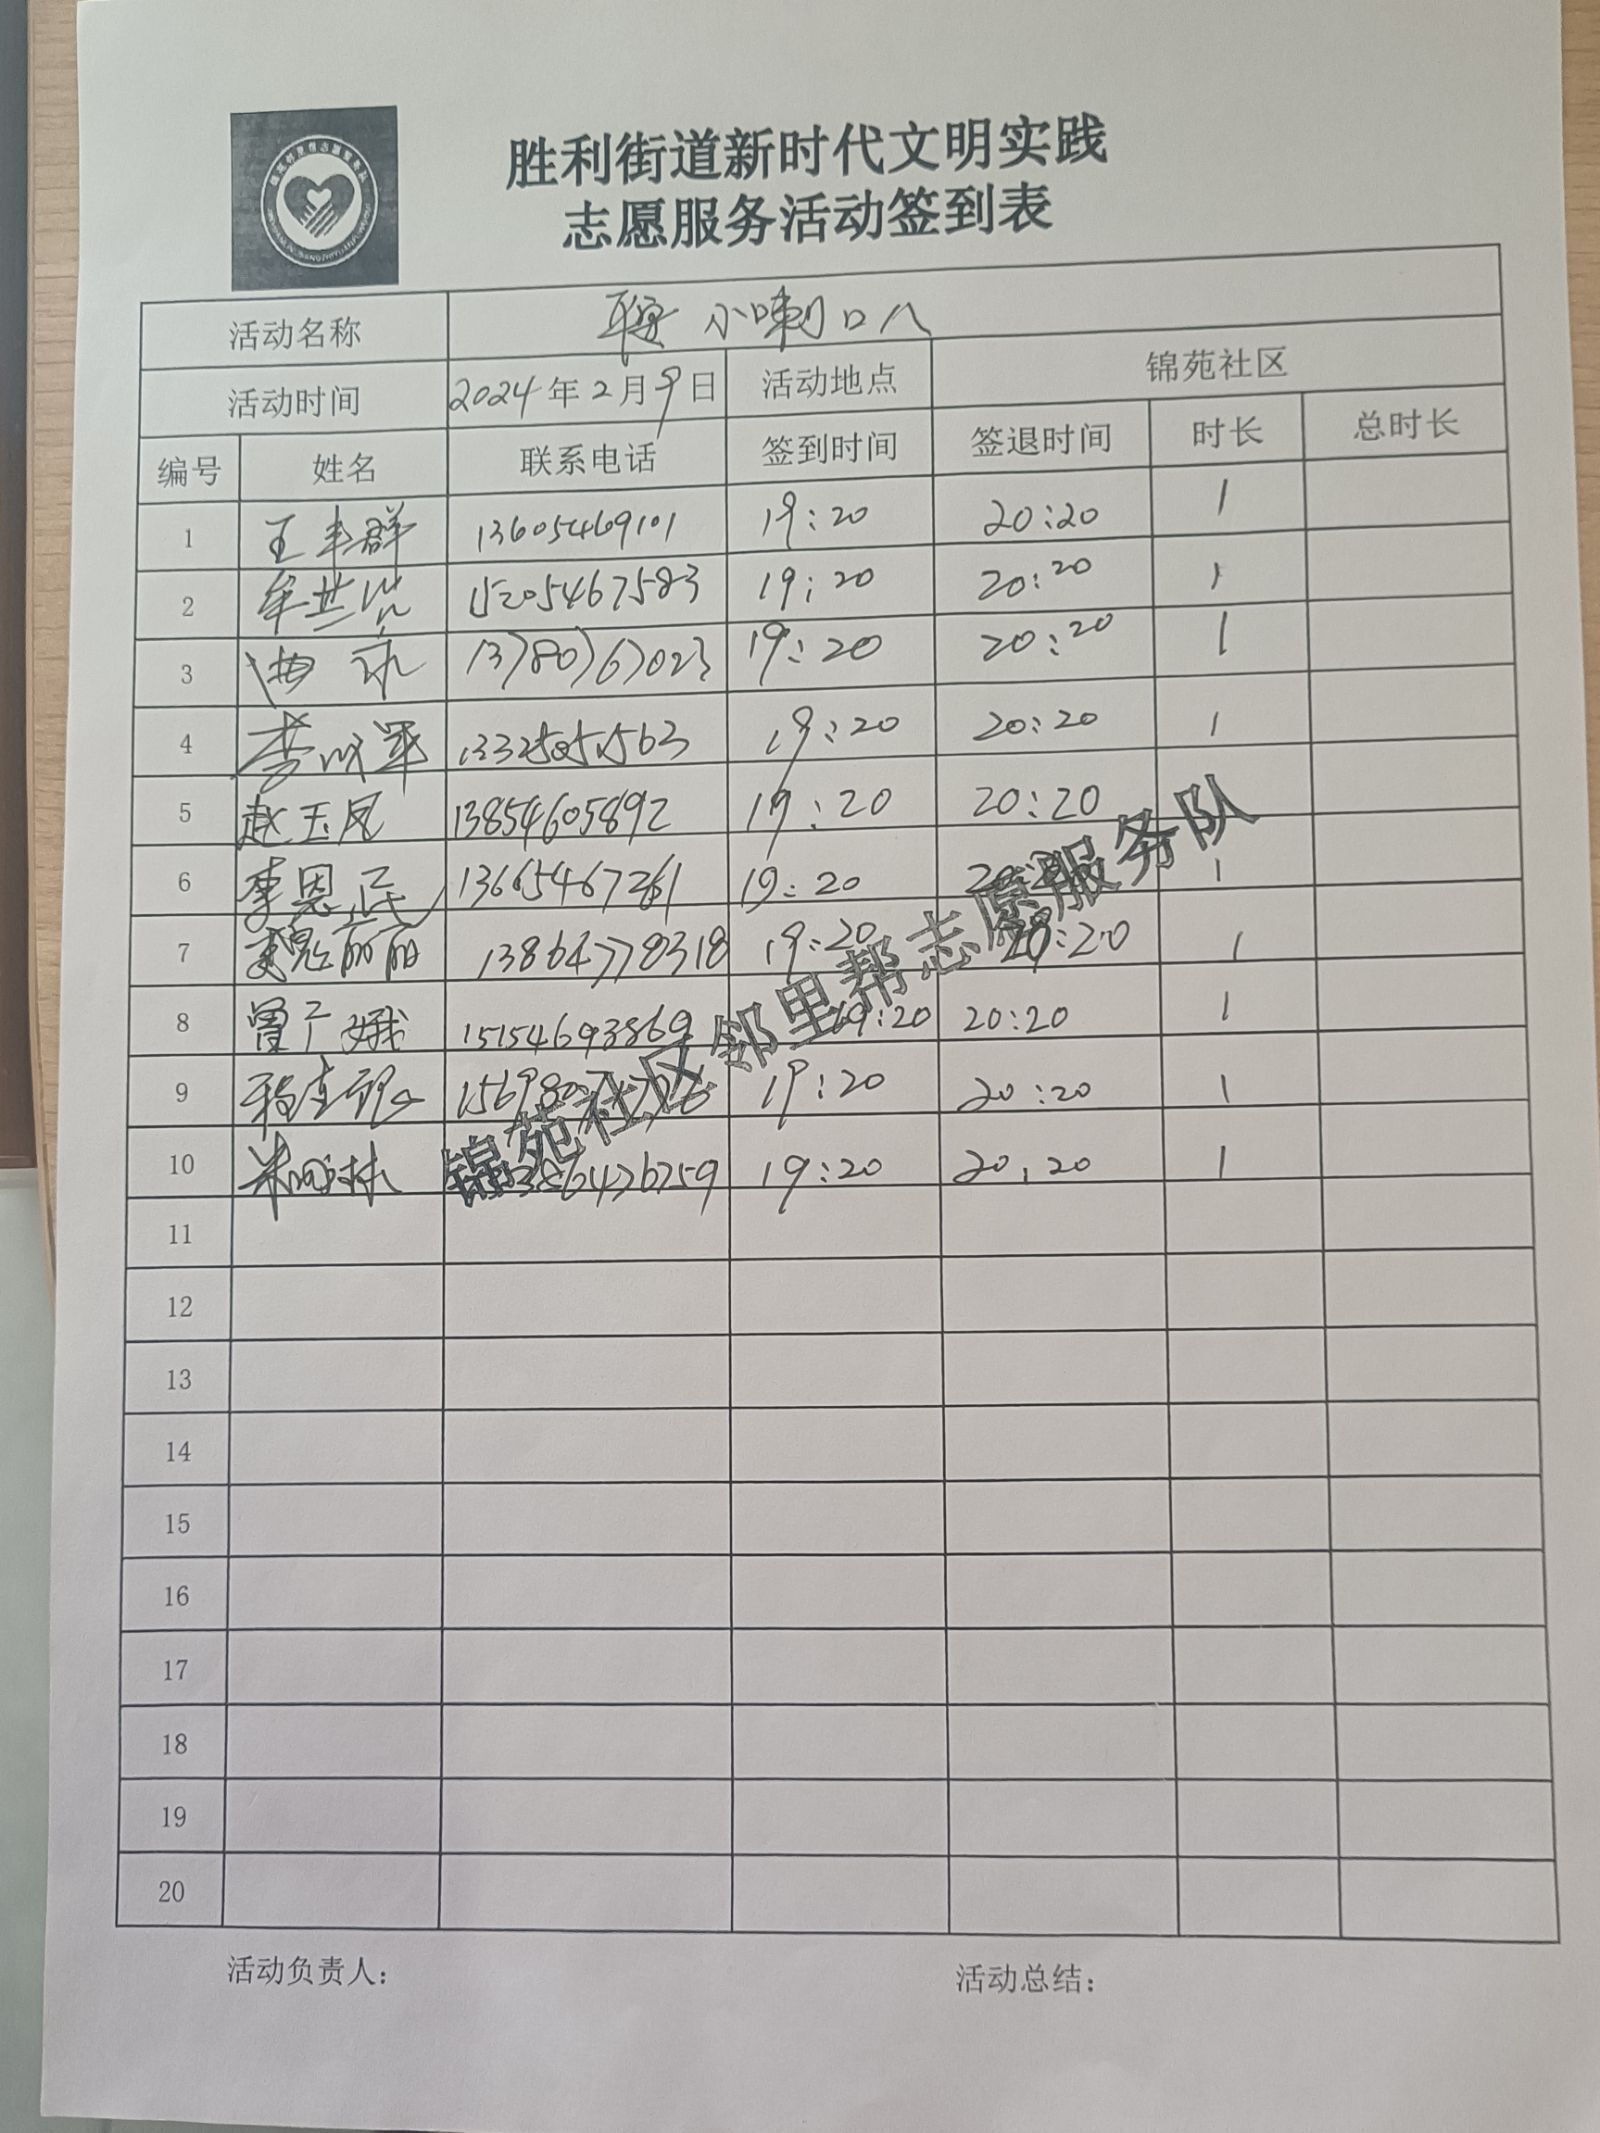 胜利街道新时代文明实践
志愿服务活动签到表
活动名称 小喇叭
活动时间 2024年2月9日 活动地点 锦苑社区
编号 姓名 联系电话 签到时间 签退时间 时长 总时长
1 王丰群 13605469101 19:20 20:20 1
2 牟 15205467583 19:20 20:20 1
3 曲 13780767023 19:20 20:20 1
4 李 19:20 20:20 1
5 赵玉凤 13854605892 19:20 20:20
6 李恩民 13665467261 19:20 1
7 丽丽 13864778318 19:20 20:20 1
8 曾广娥 15154693869 19:20 20:20 1
9 19:20 20:20 1
10 19:20 20:20 1
11
12
13
14
15
16
17
18
19
20
锦苑社区邻里帮志愿服务队
活动负责人: 活动总结: